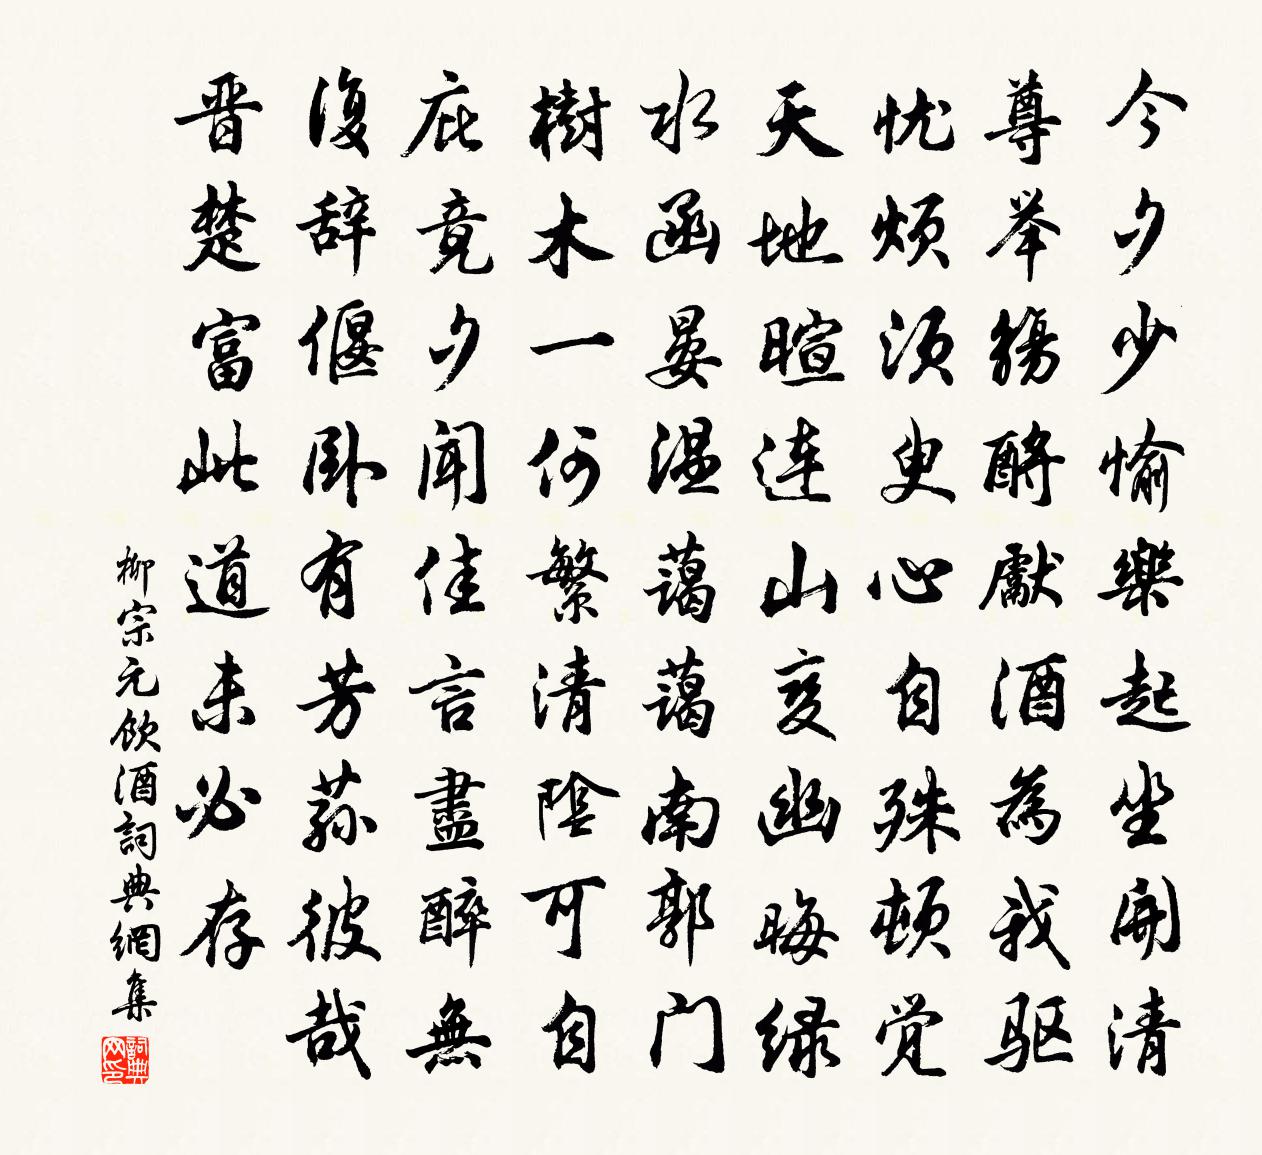 今夕少愉樂起坐開清
尊举觴酹獻酒為我驱
忧烦须臾心自殊顿觉
天地暄連山变幽晦绿
水函晏温藹藹南郭门
樹木一何繁清陰可自
庇竟夕聞佳言盡醉無
復辞偃卧有芳荪彼哉
晋楚富此道未必存
柳宗元飲酒詞典網集
詞典网印